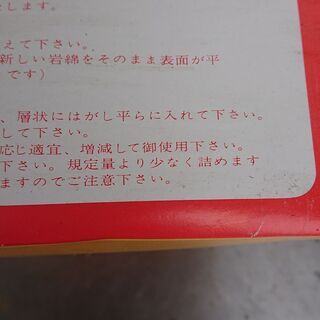 します。
えて下さい。
新しい岩綿をそのまま表面が平
です）
、層状にはがし平らに入れて下さい。
して下さい。
応じ適宜、増減して御使用下さい。
下さい。規定量より少なく詰めます
ますのでご注意下さい。